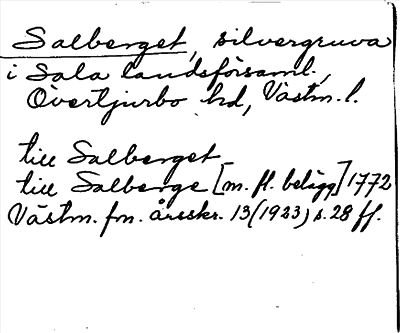 Salberget, silvergruva
i Sala landsförsaml.,
Övertjurbo hd, Västm. l.
till Salberget
till Salberge [m. fl. belägg] 1772
Västm. fm. årsskr. 13 (1923) s. 28 ff.